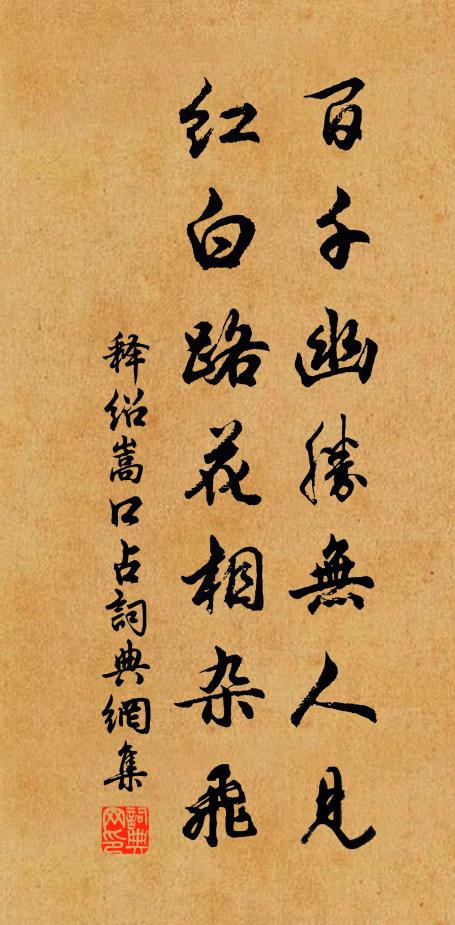 百千幽勝無人見
紅白路花相杂飛
释绍嵩口占詞典網集
詞典网印